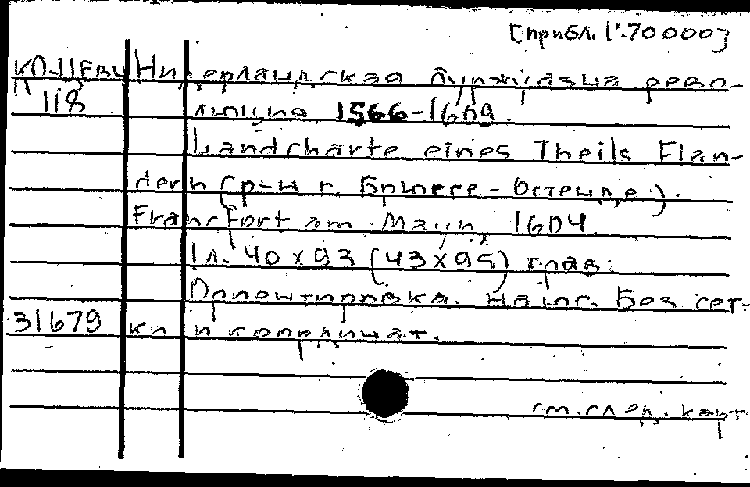 [прибл. 1:70000]
Нидерландская буржуазная рево-
118 люция 1566-1609.
Landcharte eines Theils Flan-
dern (р-н г. Брюгге - Остенде).
Francfort am Mayn, 1604.
1 л. 40 x 93 (43 x 95) грав.
Ориентировка. на юг. Без сет-
31679 ки и координат.
см. след. карт.